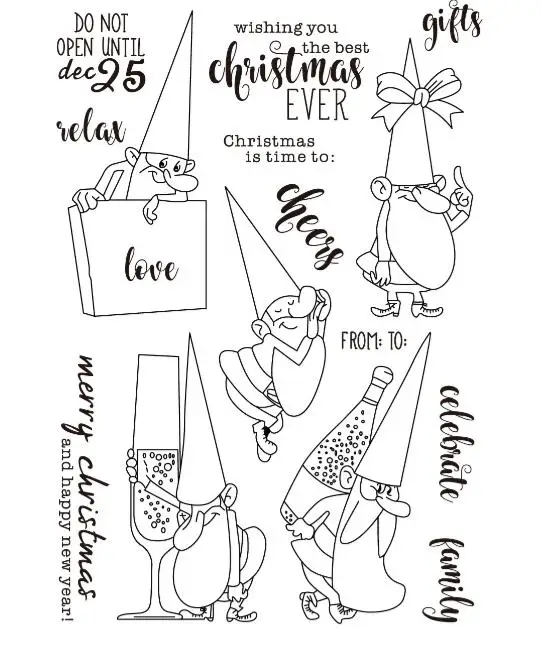 DO NOT
OPEN UNTIL
dec 25
wishing you
the best
christmas
EVER
gifts
relax
Christmas
is time to:
cheers
love
FROM: TO:
merry christmas
and happy new year!
celebrate
family